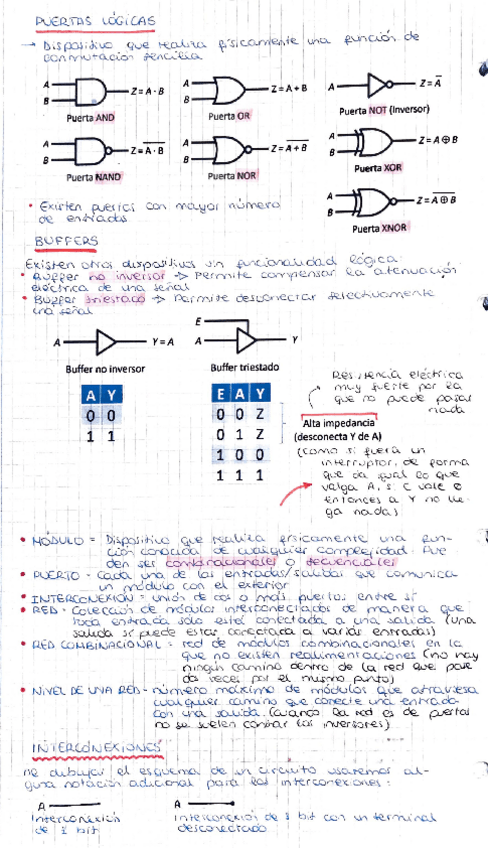 PUERTAS LÓGICAS
→ Dispositivo que realiza físicamente una función de
conmutación sencilla
A B Z = A · B
Puerta AND
A B Z = A + B
Puerta OR
A Z = A̅
Puerta NOT (Inversor)
A B Z = A̅ ·̅ B̅
Puerta NAND
A B Z = A̅ +̅ B̅
Puerta NOR
A B Z = A ⊕ B
Puerta XOR
A B Z = A̅ ⊕̅ B̅
Puerta XNOR
• Existen puertas con mayor número
de entradas
BUFFERS
Existen otros dispositivos sin funcionalidad lógica:
• Buffer no inversor → Permite compensar la atenuación
eléctrica de una señal
• Buffer triestado → Permite desconectar selectivamente
una señal
A Y = A
Buffer no inversor
A Y
0 0
1 1
E A Y
Buffer triestado
E A Y
0 0 Z
0 1 Z
1 0 0
1 1 1
Resistencia eléctrica
muy fuerte por la
que no puede pasar
nada
Alta impedancia
(desconecta Y de A)
(como si fuera un
interruptor, de forma
que da igual lo que
valga A, si E vale 0
entonces a Y no lle-
ga nada)
• MÓDULO = Dispositivo que realiza físicamente una fun-
ción conocida de cualquier complejidad. Pue-
den ser combinacionales o secuenciales
• PUERTO - Cada una de las entradas/salidas que comunica
un módulo con el exterior
• INTERCONEXIÓN = unión de dos o más puertos entre sí
• RED - Colección de módulos interconectados de manera que
toda entrada solo esté conectada a una salida (una
salida sí puede estar conectada a varias entradas)
• RED COMBINACIONAL = red de módulos combinacionales en la
que no existen realimentaciones (no hay
ningún camino dentro de la red que pase
dos veces por el mismo punto)
• NIVEL DE UNA RED - número máximo de módulos que atraviesa
cualquier camino que conecte una entrada
con una salida. (cuando la red es de puertas
no se suelen contar los inversores)
INTERCONEXIONES
Al dibujar el esquema de un circuito usaremos al-
guna notación adicional para las interconexiones:
A
Interconexión
de 1 bit
A
Interconexión de 1 bit con un terminal
desconectado